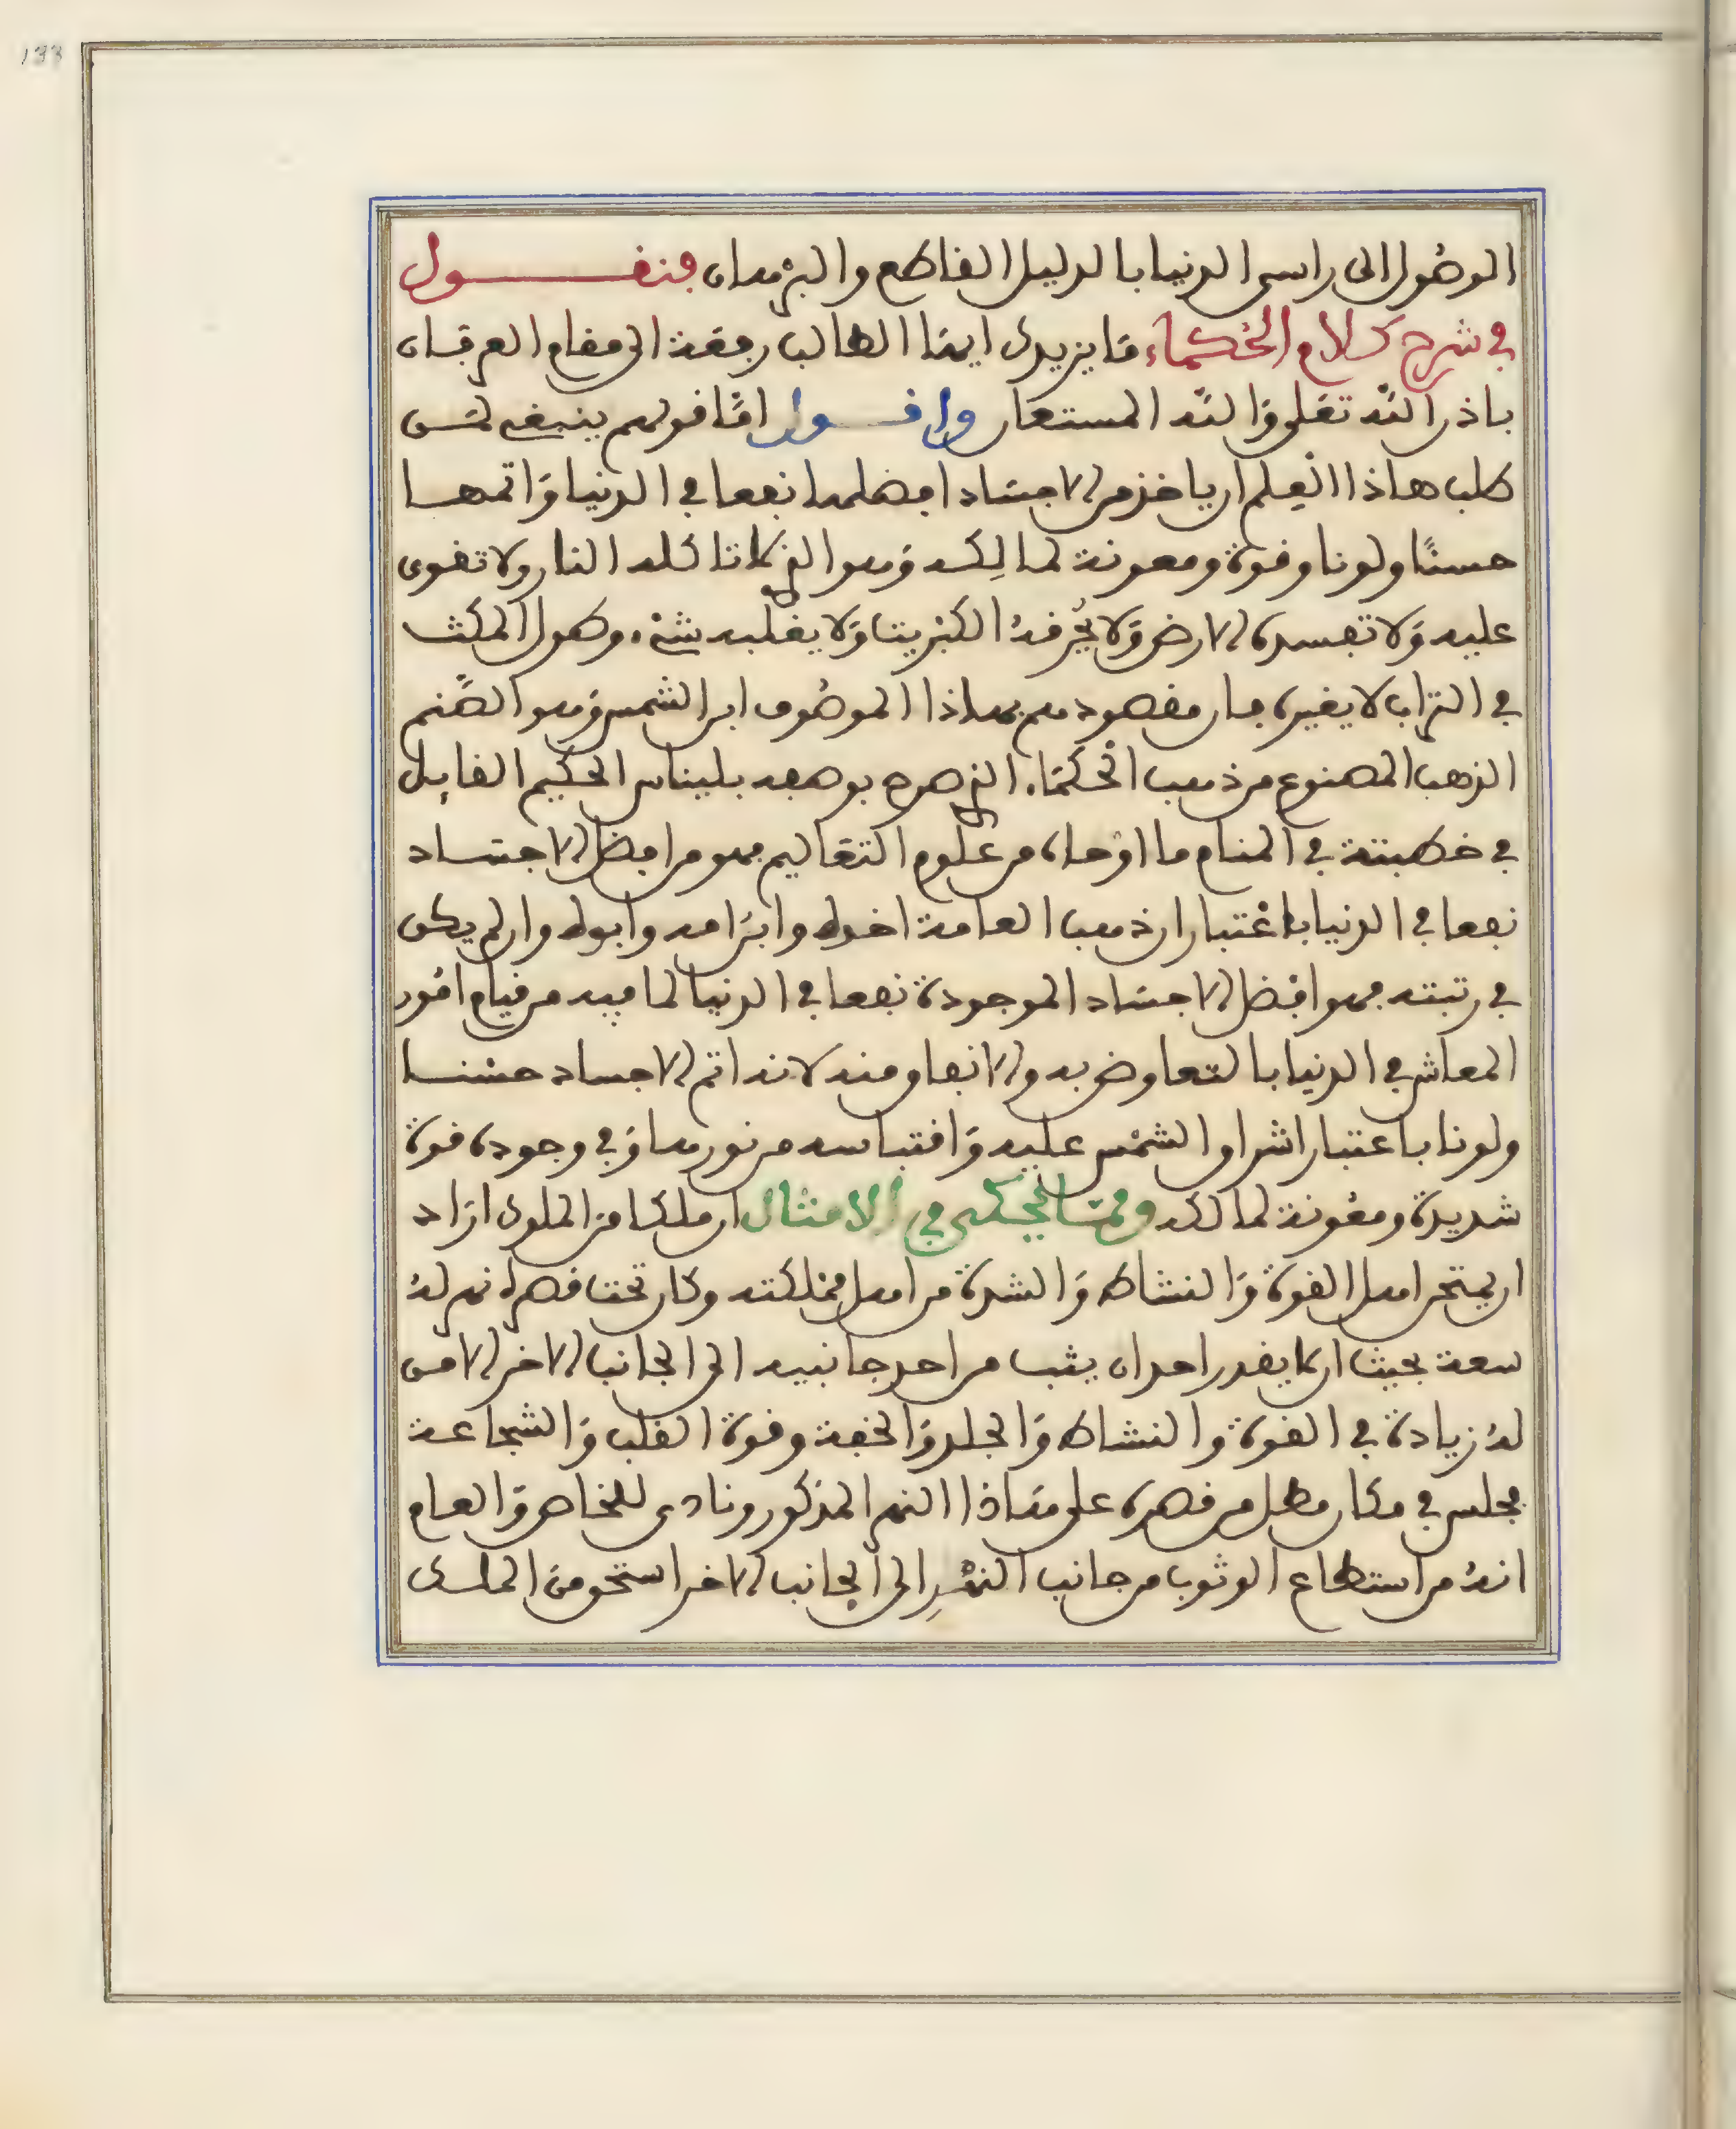 133
الوصول الى راس الدنيا بالدليل القاطع والبرهان فنقول
في شرح كلام الحكماء ما يزيدك ايها الطالب رفعة الى مقام العرفان
باذن الله تعلى والله المستعان واقول اما قولهم ينبغي لمن
طلب هاذا العلم ان ياخذ من الاجساد افضلها نفعا في الدنيا واتمها
حسنا ولونا وقوة ومعونة لمالكه وهو الذي لا تاكله النار ولا تقوى
عليه ولا تفسده الارض ولا يحرقه الكبريت ولا يغلبه شيء وطول المكث
في التراب لا يغيره فان مقصودهم بهاذا الموصوف ابن الشمس وهو الصنم
الذهب المصنوع من ذهب الحكماء الذي صرح بوصفه بليناس الحكيم القايل
في خطبته في المنام ما اوحاه من علوم التعاليم فهو من افضل الاجساد
نفعا في الدنيا باعتبار ان ذهب العامة اخوه وابن امه وابوه وان لم يكن
في رتبته فهو افضل الاجساد الموجودة نفعا في الدنيا لما فيه من قيام امور
المعاش في الدنيا بالتعاوض به والانفاق منه لانه اتم الاجساد حسنا
ولونا باعتبار اشراق الشمس عليه واقتباسه من نورها وفي وجوده قوة
شديدة ومعونة لمالكه ومما يحكى في الامثال ان ملكا من الملوك اراد
ان يمتحن اهل القوة والنشاط والشدة من اهل مملكته وكان تحت قصره نهر له
سعة بحيث ان لا يقدر احد ان يثب من احد جانبيه الى الجانب الاخر الا من
له زيادة في القوة والنشاط والجلد والخفة وقوة القلب والشجاعة
فجلس في مكان مطل من قصره على هاذا النهر المذكور ونادى للخاص والعام
انه من استطاع الوثوب من جانب النهر الى الجانب الاخر استحق من الملك